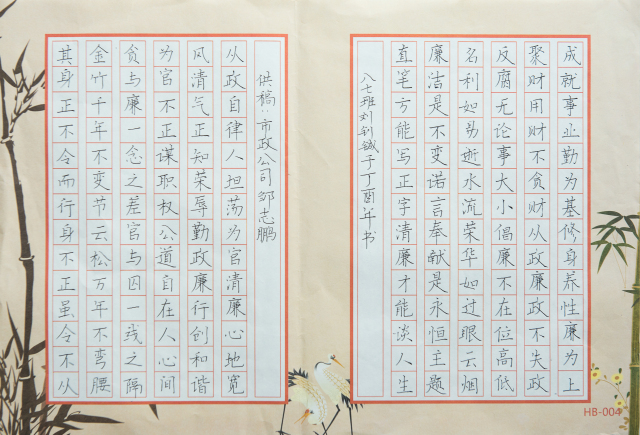 成就事业勤为基修身养性廉为上
聚财用财不贪财从政廉政不失政
反腐无论事大小倡廉不在位高低
名利如易逝水流荣华如过眼云烟
廉洁是不变诺言奉献是永恒主题
直笔方能写正字清廉才能谈人生
八七班刘钊铖于丁酉年书
供稿:市政公司邹志鹏
从政自律人担荡为官清廉心地宽
风清气正知荣辱勤政廉行创和谐
为官不正谋职权公道自在人心间
贪与廉一念之差官与囚一线之隔
金竹千年不变节云松万年不弯腰
其身正不令而行身不正虽令不从
HB-004